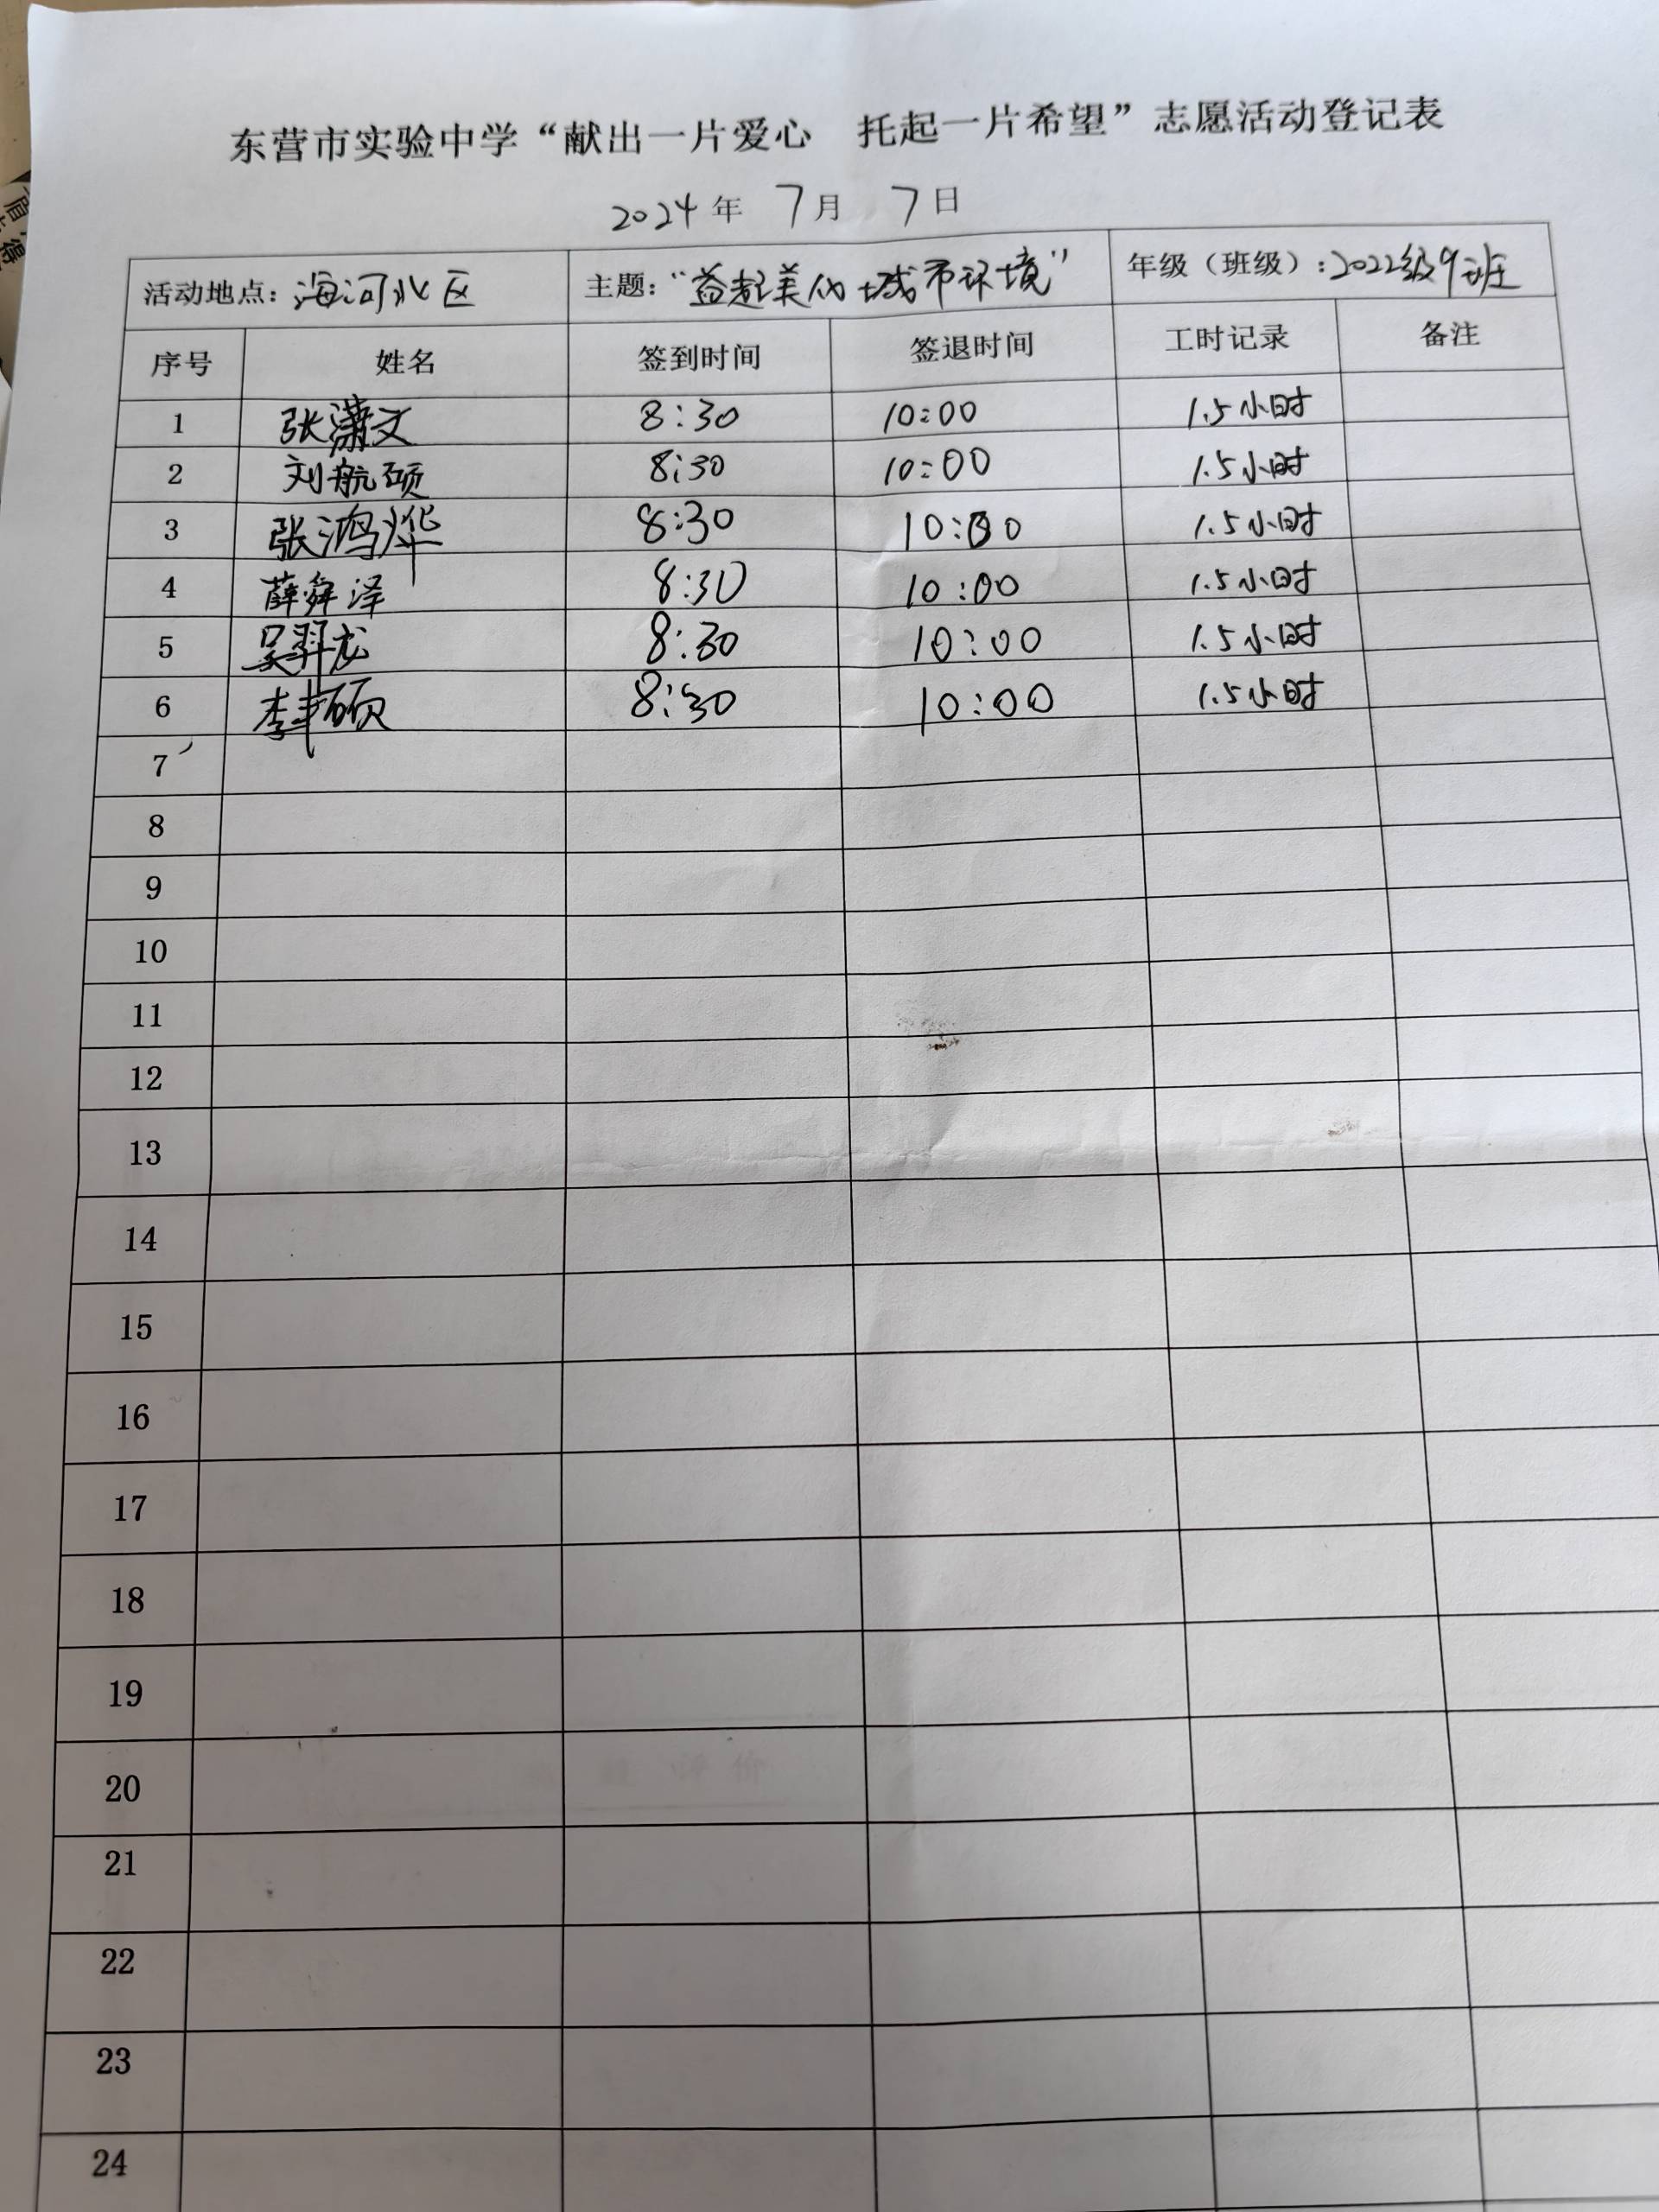 东营市实验中学“献出一片爱心 托起一片希望”志愿活动登记表
2024年 7月 7日
活动地点：海河北区 主题：“益起美化城市环境” 年级（班级）：2022级9班
序号 姓名 签到时间 签退时间 工时记录 备注
1 张潇文 8:30 10:00 1.5小时
2 刘航硕 8:30 10:00 1.5小时
3 张鸿烨 8:30 10:00 1.5小时
4 薛舜泽 8:30 10:00 1.5小时
5 吴羿龙 8:30 10:00 1.5小时
6 李丰硕 8:30 10:00 1.5小时
7
8
9
10
11
12
13
14
15
16
17
18
19
20
21
22
23
24